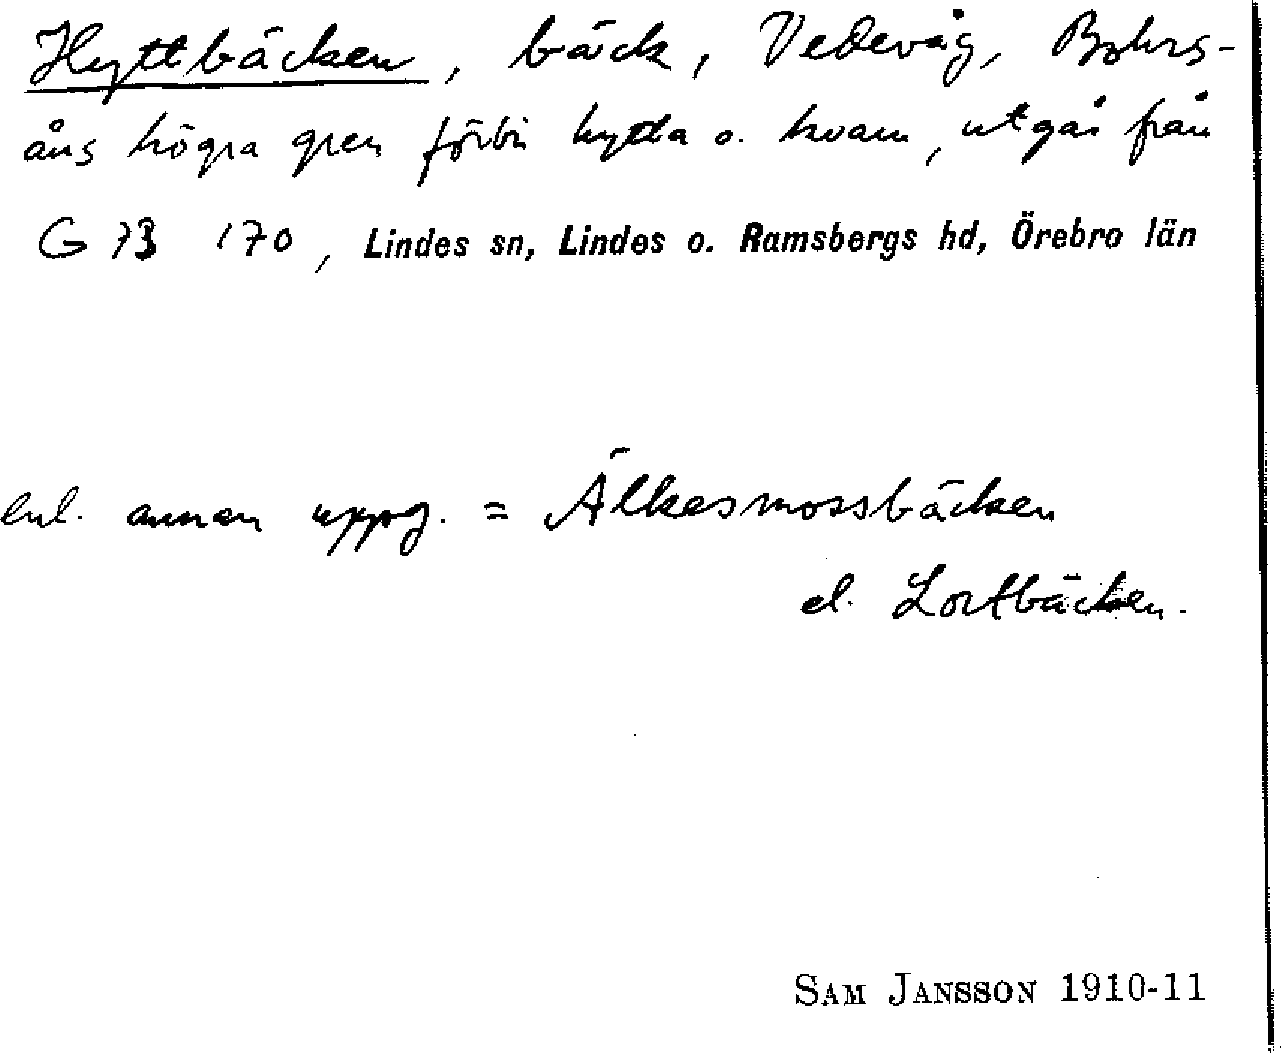 Hyttbäcken, bäck, Vedevåg, Bohrs-
åns högra gren förbi hytta o. kvarn, utgår från
G 73 170, Lindes sn, Lindes o. Ramsbergs hd, Örebro län
enl. annan uppg. = Älkesmossbäcken
el. Lortbäcken.
SAM JANSSON 1910-11